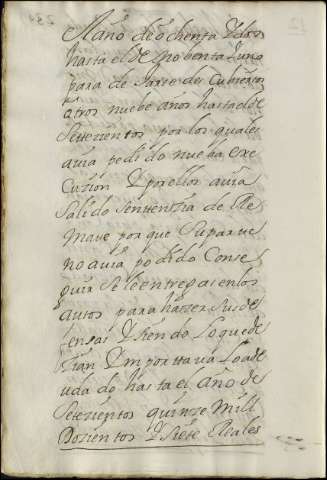 Al año de ochenta y dos
hasta el de nobenta y uno
para de
otros nuebe años hasta el de
Settezientos por los quales
avia pedido nueba exe
cuzion y por ellos avia
Salido Senttenzia de Re
mate por que Su parte
no avia podido Conse
guir se le entregasen los
auttos para hazer Sus de
fensas y Siendo lo que de
vian y importtava lo a de
udado hasta el año de
Setezientos quinze Mill
Dozientos y Siete Reales